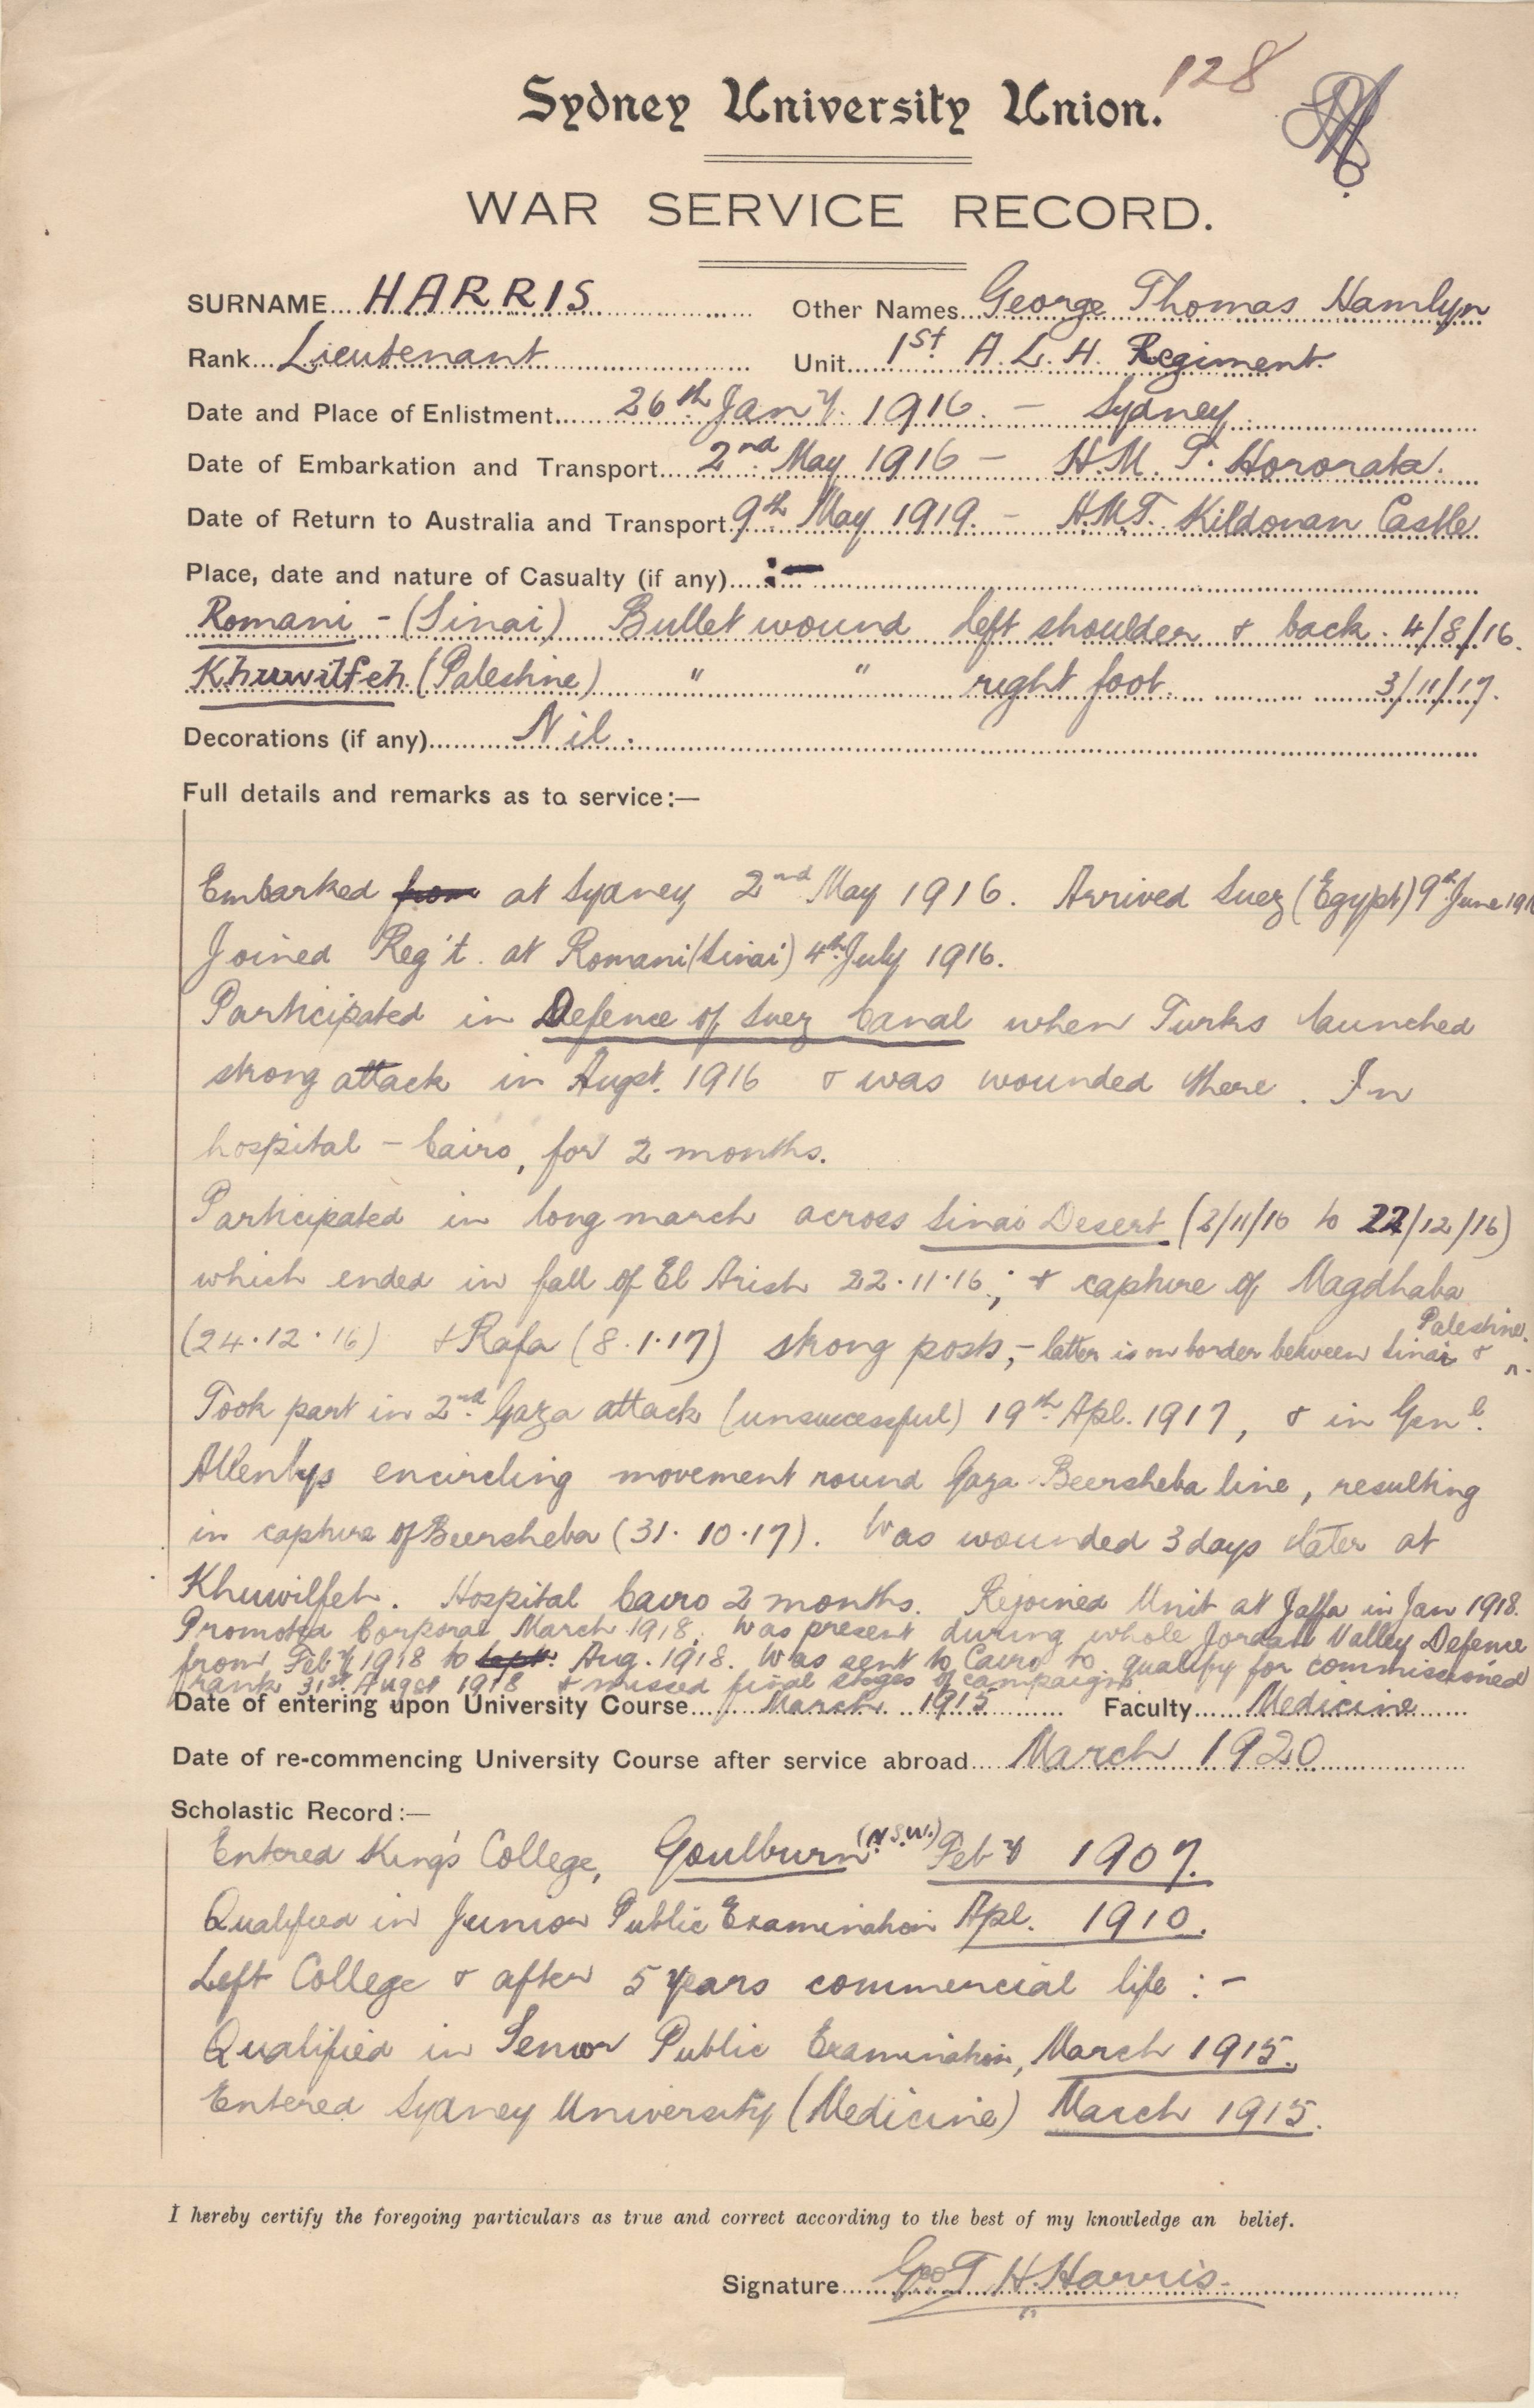 128
Sydney University Union.
WAR SERVICE RECORD.
SURNAME... HARRIS Other Names... George Thomas Hamlyn
Rank... Lieutenant Unit... 1st A. L. H. Regiment.
Date and Place of Enlistment... 26th Jany. 1916. - Sydney.
Date of Embarkation and Transport... 2nd May 1916 - H.M.T. Hororata.
Date of Return to Australia and Transport 9th May 1919. - H.M.T. Kildonan Castle
Place, date and nature of Casualty (if any)... :-
Romani - (Sinai) Bullet wound left shoulder & back. 4/8/16.
Khuwilfeh (Palestine) " " right foot. 3/11/17.
Decorations (if any)... Nil.
Full details and remarks as to service:—
Embarked from at Sydney 2nd May 1916. Arrived Suez (Egypt) 9th June 191
Joined Reg't. at Romani (Sinai) 4th July 1916.
Participated in Defence of Suez Canal when Turks launched
strong attack in Augst. 1916 & was wounded there. In
hospital - Cairo, for 2 months.
Participated in long march across Sinai Desert (2/11/16 to 22/12/16)
which ended in fall of El Arish 22.11.16; & capture of Magdhaba
(24.12.16) & Rafa (8.1.17) strong posts, - latter is on border between Sinai & Palestine.
Took part in 2nd Gaza attack (unsuccessful) 19th Apl. 1917, & in Genl.
Allenbys encircling movement round Gaza-Beersheba line, resulting
in capture of Beersheba (31.10.17). Was wounded 3 days later at
Khuwilfeh. Hospital Cairo 2 months. Rejoined Unit at Jaffa in Jan 1918.
Promoted Corporal March 1918. Was present during whole Jordan Valley Defence
from Feby 1918 to Sept. Aug. 1918. Was sent to Cairo to qualify for commissioned
rank 31st Augst 1918 & missed final stages of campaign
Date of entering upon University Course... March 1915 Faculty... Medicine
Date of re-commencing University Course after service abroad... March 1920
Scholastic Record:—
Entered King's College, Goulburn (N.S.W.) Feby 1907.
Qualified in Junior Public Examination Apl. 1910.
Left College & after 5 years commercial life :-
Qualified in Senior Public Examination, March 1915.
Entered Sydney University (Medicine) March 1915.
I hereby certify the foregoing particulars as true and correct according to the best of my knowledge an belief.
Signature... Geo T H. Harris.